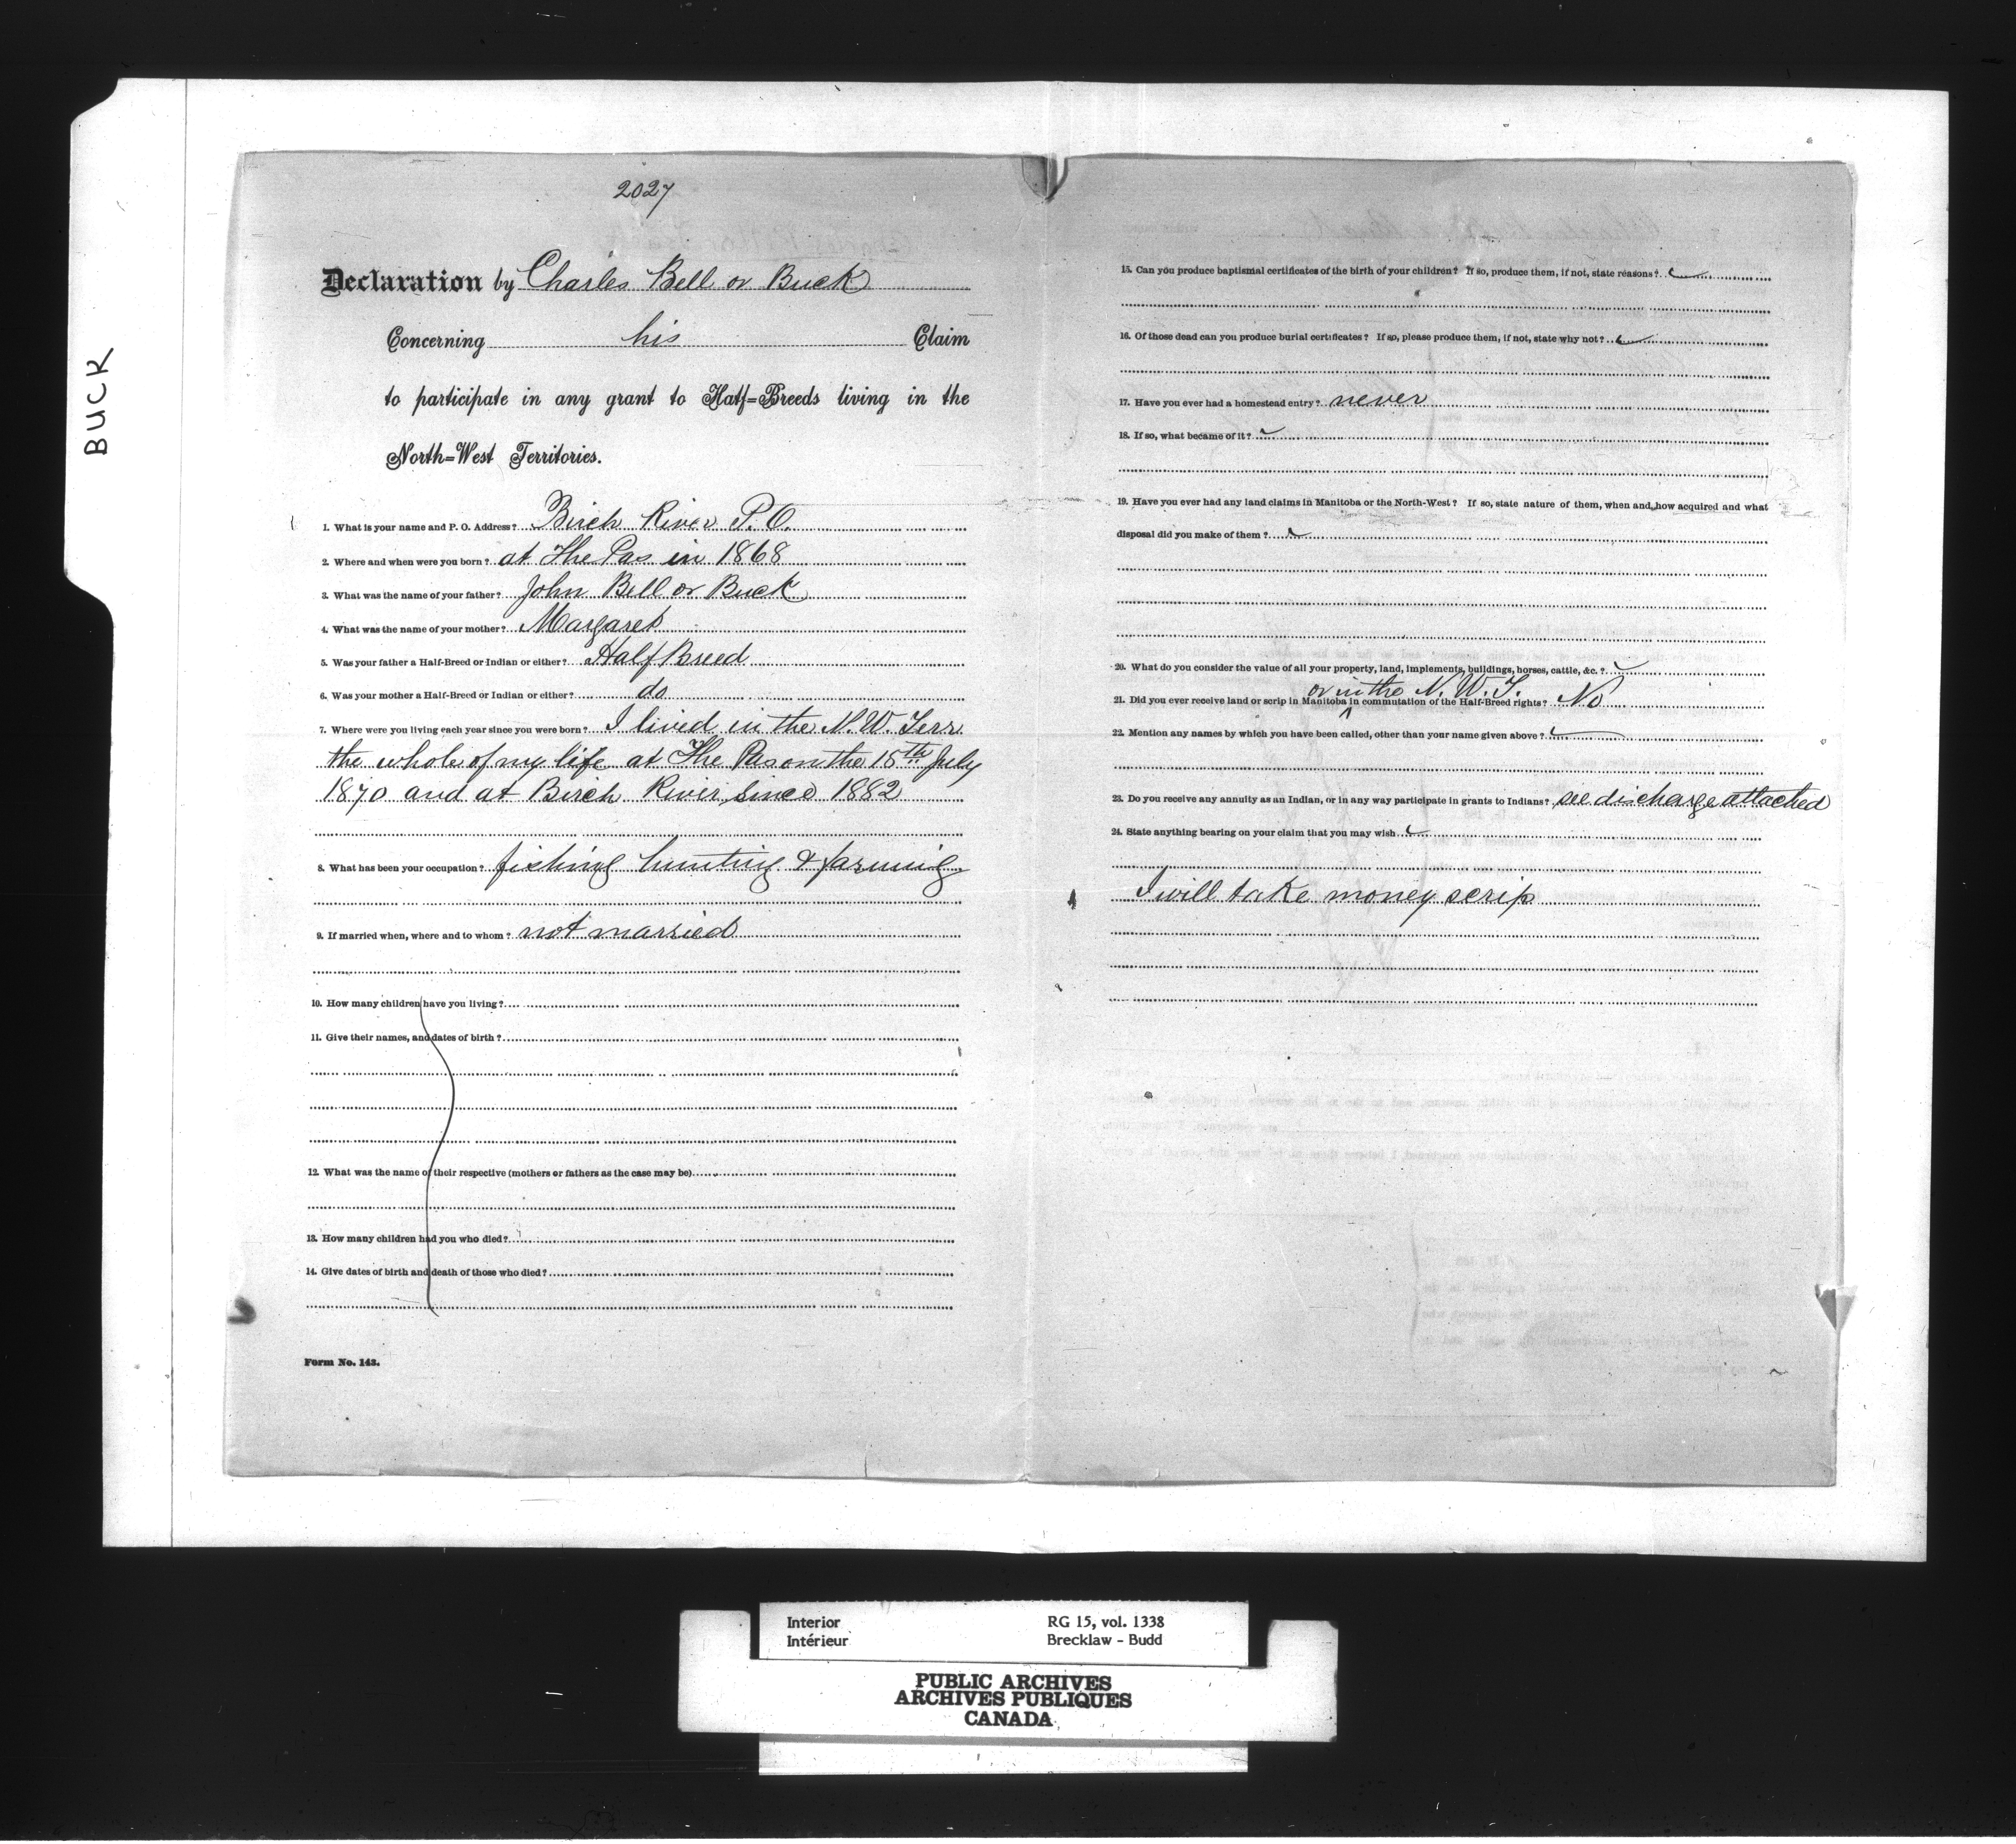 BUCK
2027
Declaration by Charles Bell or Buck
Concerning his Claim
to participate in any grant to Half=Breeds living in the
North=West Territories.
1. What is your name and P. O. Address? Birch River P.O.
2. Where and when were you born? at The Pas in 1868
3. What was the name of your father? John Bell or Buck
4. What was the name of your mother? Margaret
5. Was your father a Half-Breed or Indian or either? Half Breed
6. Was your mother a Half-Breed or Indian or either? do
7. Where were you living each year since you were born? I lived in the N.W. Terr
the whole of my life at The Pas on the 15th July
1870 and at Birch River since 1882
8. What has been your occupation? fishing hunting & farming
9. If married when, where and to whom? not married
10. How many children have you living?
11. Give their names, and dates of birth?
12. What was the name of their respective (mothers or fathers as the case may be)
13. How many children had you who died?
14. Give dates of birth and death of those who died?
Form No. 143.
15. Can you produce baptismal certificates of the birth of your children? If so, produce them, if not, state reasons?
16. Of those dead can you produce burial certificates? If so, please produce them, if not, state why not?
17. Have you ever had a homestead entry? never
18. If so, what became of it?
19. Have you ever had any land claims in Manitoba or the North-West? If so, state nature of them, when and how acquired and what
disposal did you make of them?
20. What do you consider the value of all your property, land, implements, buildings, horses, cattle, &c.?
or in the N. W. T.
21. Did you ever receive land or scrip in Manitoba in commutation of the Half-Breed rights? No
22. Mention any names by which you have been called, other than your name given above?
23. Do you receive any annuity as an Indian, or in any way participate in grants to Indians? see discharge attached
24. State anything bearing on your claim that you may wish
I will take money scrip
Interior RG 15, vol. 1338
Intérieur Brecklaw - Budd
PUBLIC ARCHIVES
ARCHIVES PUBLIQUES
CANADA